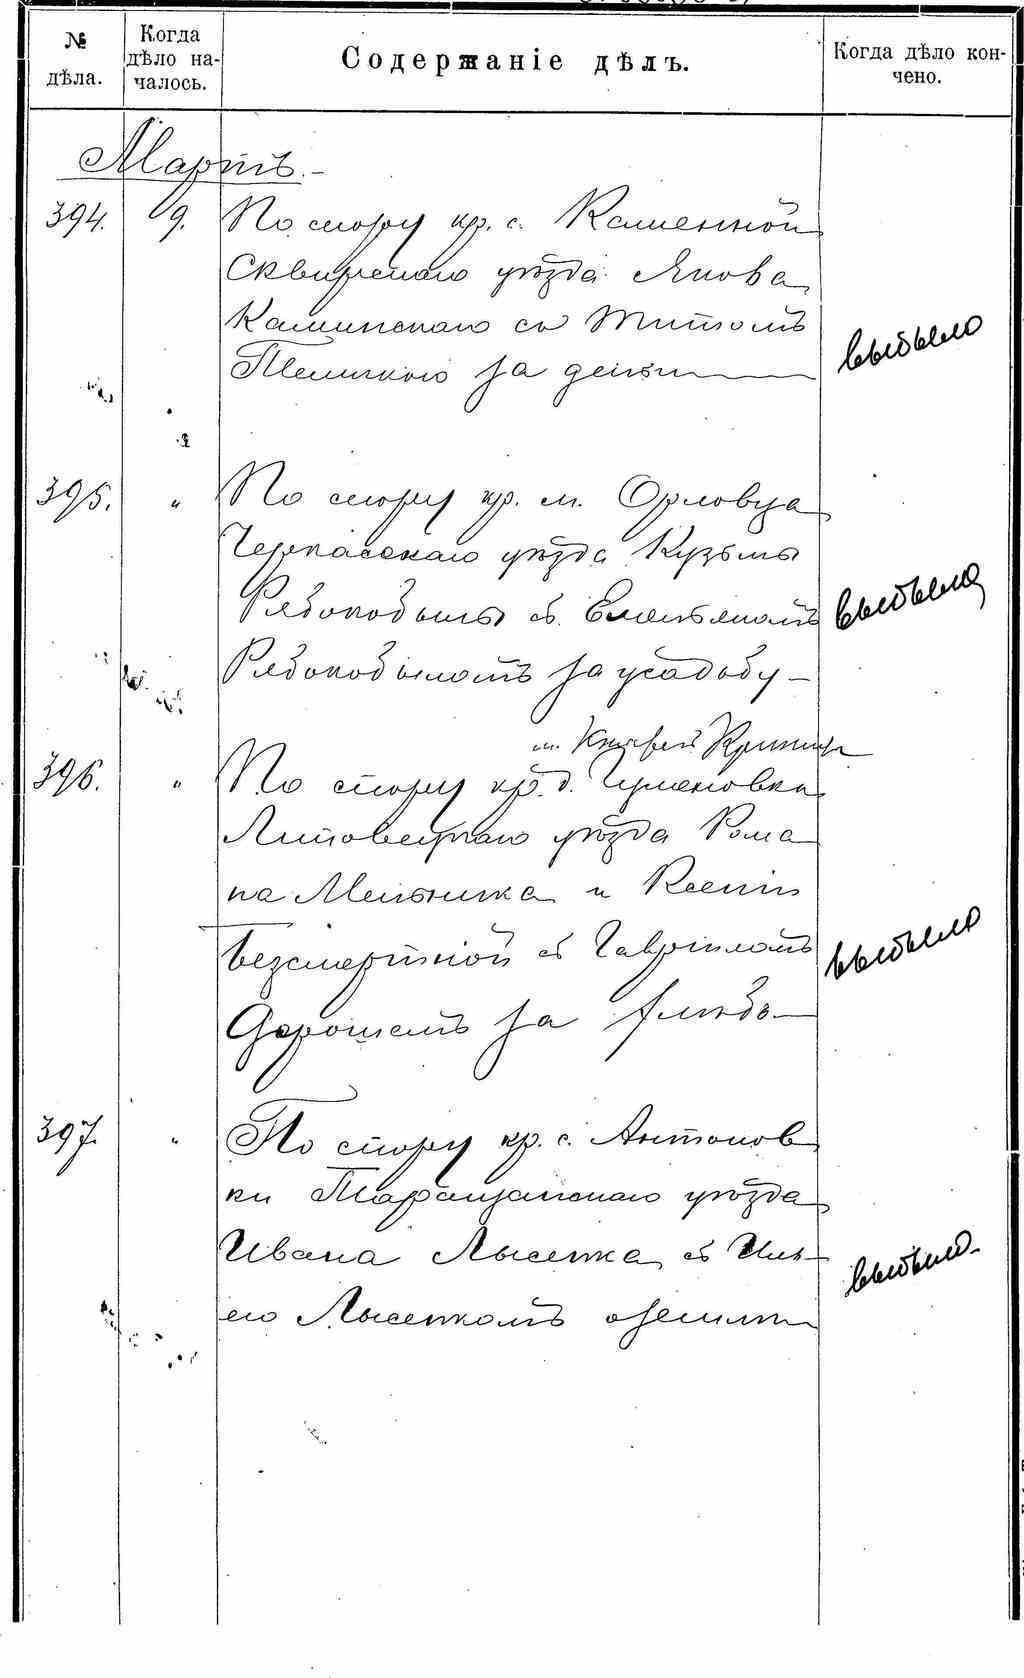 № дѣла.
Когда дѣло на-
чалось.
Содержаніе дѣлъ.
Когда дѣло кон-
чено.
Мартъ.-
394. 9. По спору кр. с. Каменной
Сквирскаго уѣзда Якова
Каминскаго съ Титомъ
за деньги
выбыло
395. " По спору кр. м. Орловца
Черкасскаго уѣзда Кузьмы
Рябокобылы съ Емельяномъ
Рябокобыломъ за усадьбу -
выбыло
м. Княжей Криницы
396. " По спору кр. д.
Липовецкаго уѣзда Рома
на Мельника и Ксеніи
Безсмертной съ Гавріиломъ
Дорошемъ за
выбыло
397. " По спору кр. с. Антонов
ки Таращанскаго уѣзда
Ивана Лысенка съ Иль-
ею Лысенкомъ о землѣ
выбыло.